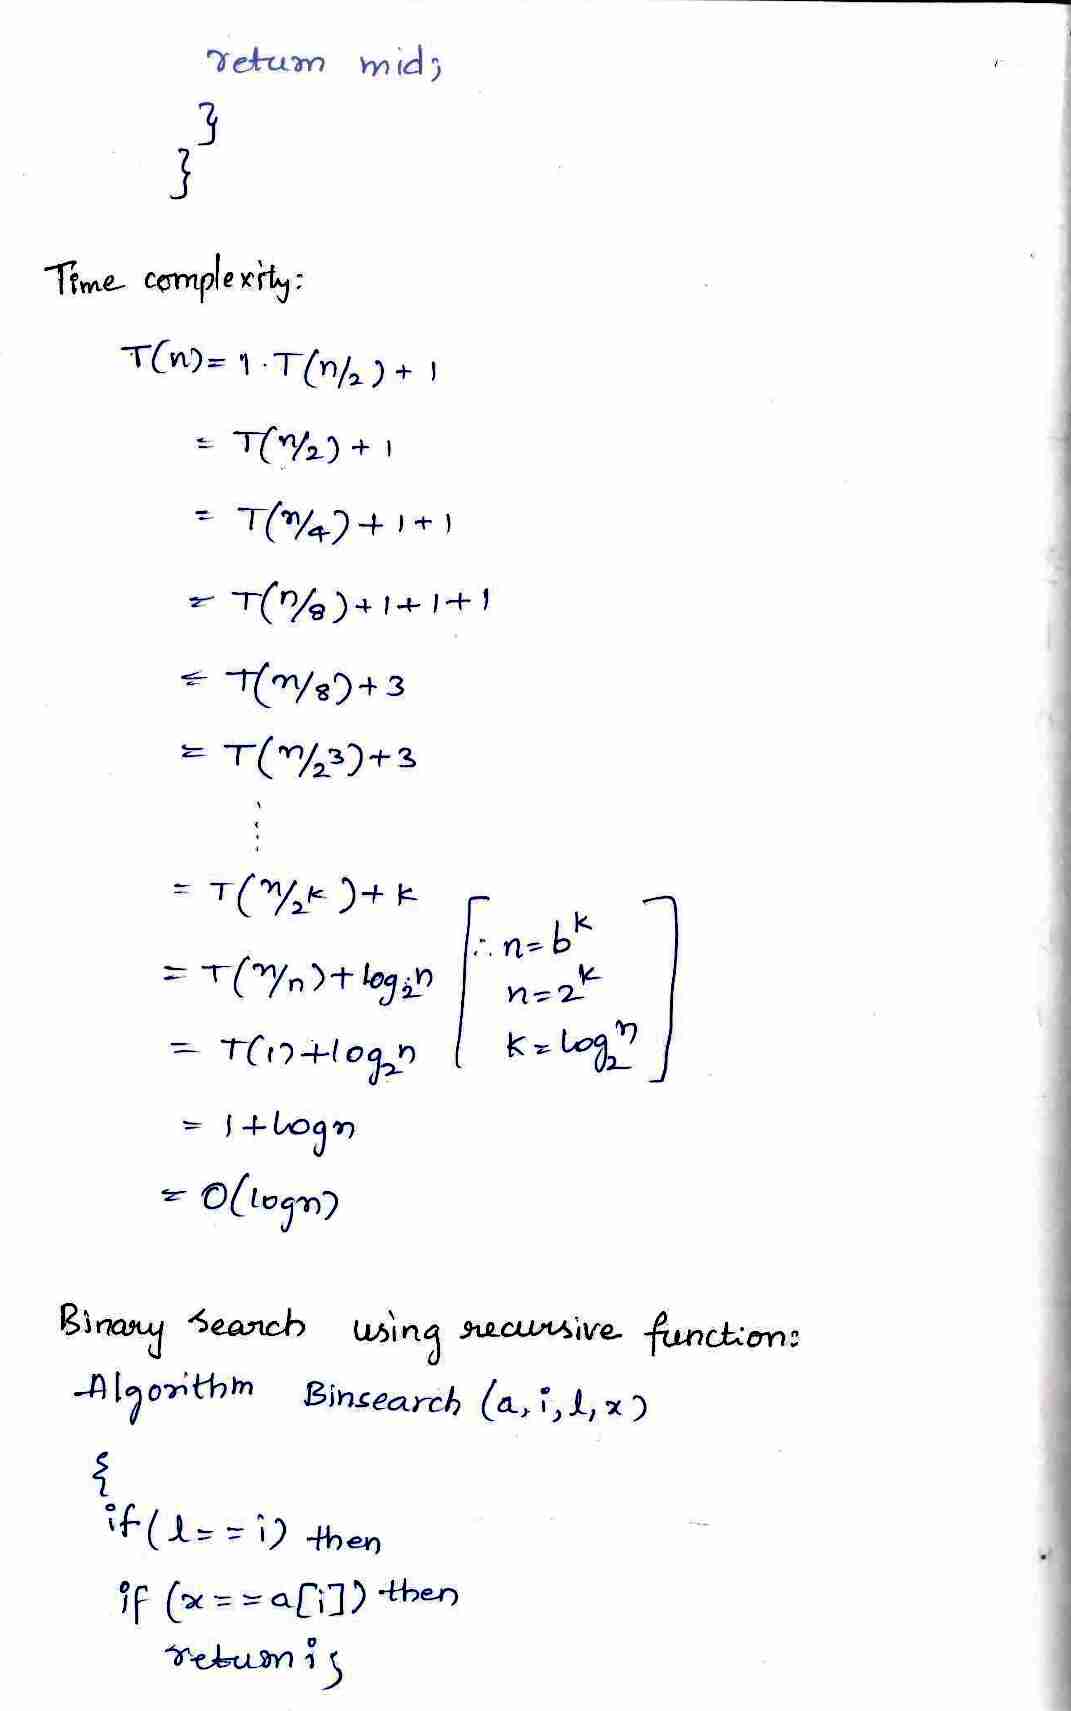 return mid;
}
}
Time complexity:
T(n) = 1·T(n/2) + 1
= T(n/2) + 1
= T(n/4) + 1 + 1
= T(n/8) + 1 + 1 + 1
= T(n/8) + 3
= T(n/2³) + 3
⋮
= T(n/2^k) + k
= T(n/n) + log₂n
= T(1) + log₂n
[∴ n = b^k
n = 2^k
k = log₂n]
= 1 + logn
= O(logn)
Binary search using recursive function:
Algorithm Binsearch (a, i, l, x)
{
if (l == i) then
if (x == a[i]) then
return i;